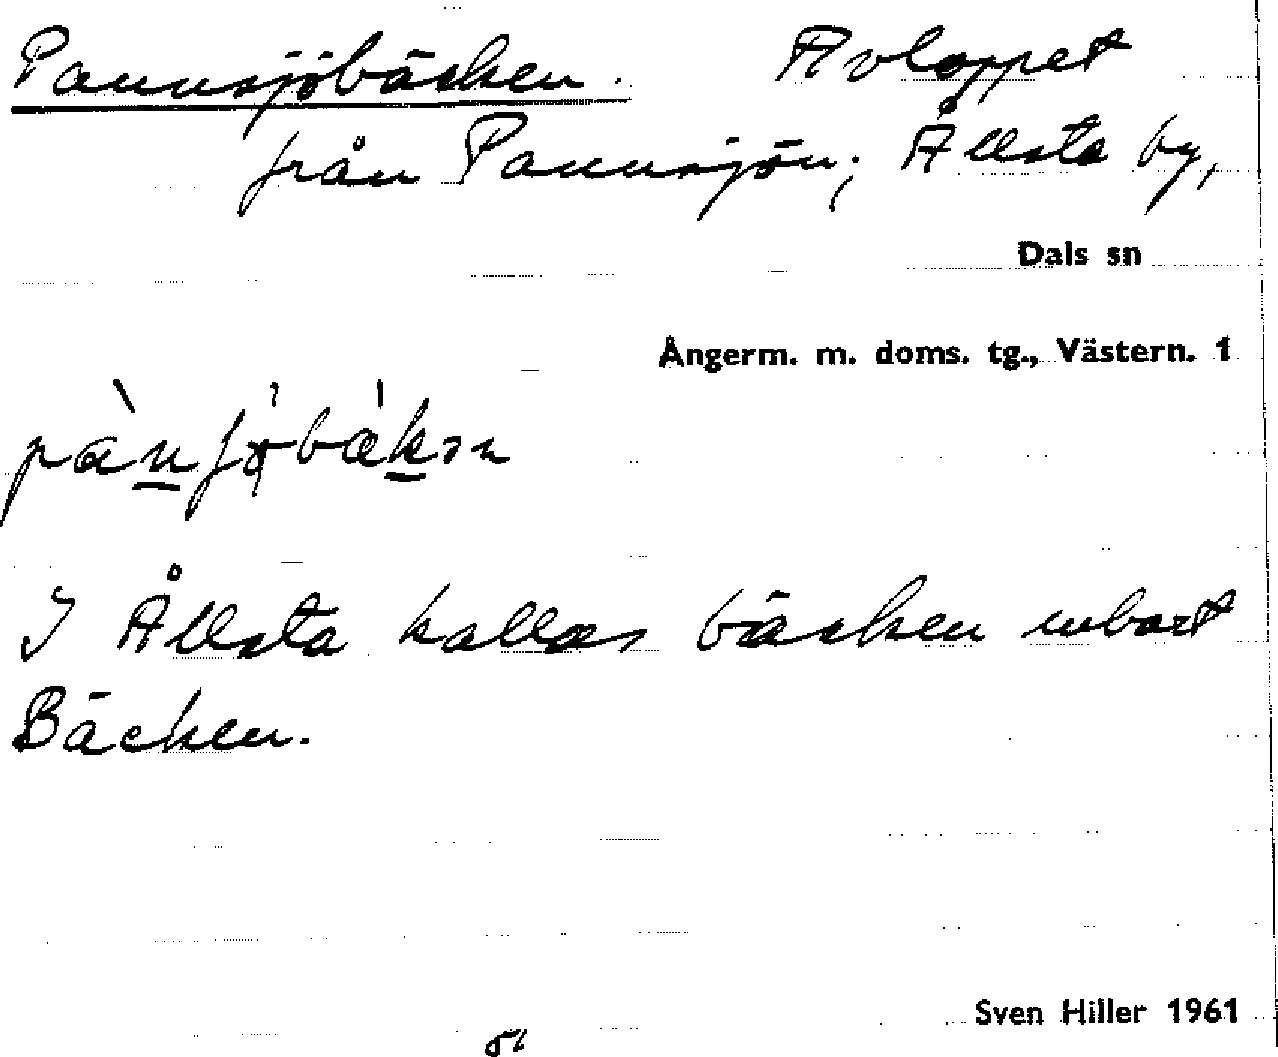 Pannsjöbäcken. Avloppet
från Pannsjön; Ållsta by,
Dals sn
Ångerm. m. doms. tg., Västern. 1
I Ållsta kallas bäcken enbart
Bäcken.
Sven Hiller 1961